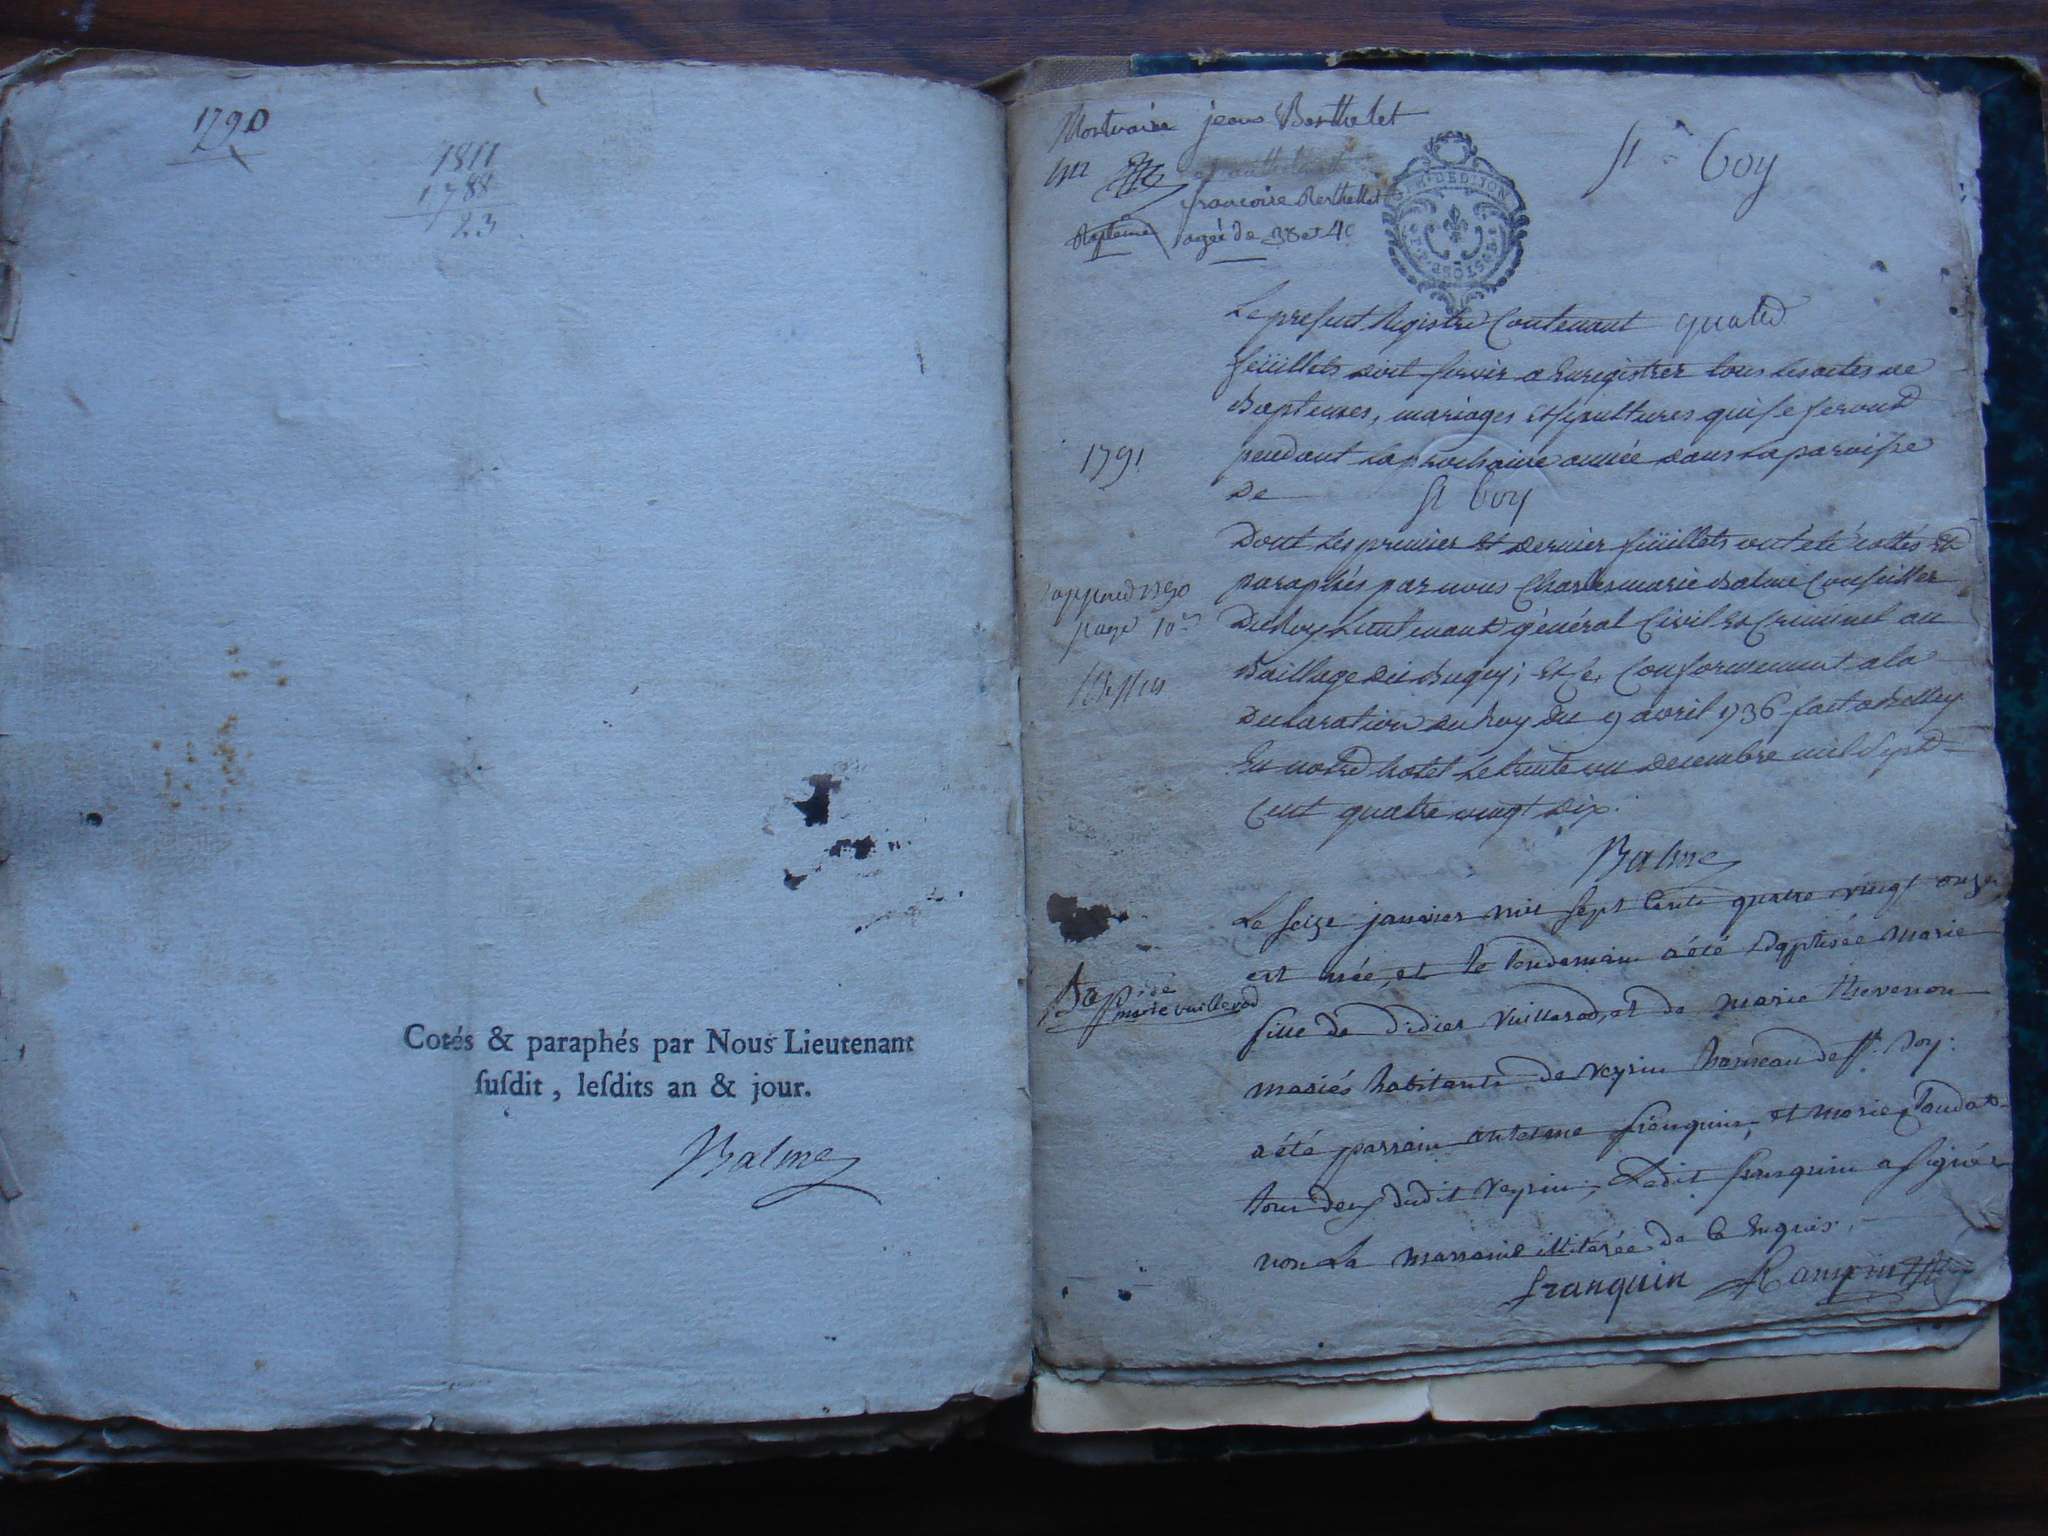 1790
1811
1788
23
Cotés & paraphés par Nous Lieutenant
ſuſdit, leſdits an & jour.
Balme
jean Berthelet
St Boy
francoise Berthelet
agés de 38 et 40
Le present Registre Contenant quatre
feüillets doit servir a Enregistrer tous les actes de
Baptemes, mariages et sepultures qui se feront
pendant la prochaine année dans la paroisse
1791
de St Boy
Dont les premier et dernier feüillets ont été cottés et
paraphés par nous Charles marie Balme Conseiller
Du Roy Lieutenant général Civil et Criminel au
page 10
Bailliage du Bugey; et ce, Conformement a la
Declaration du Roy du 9 avril 1736 fait a Belley
En notre hotel le trente un decembre mil sept
Cent quatre vingt dix.
Balme
Le seize janvier mil sept cents quatre vingt onze
est née, et le lendemain a été Baptisée marie
Bapt. de
marie vuillerod
fille de didier Vuillerod, et de marie thevenon
mariés habitants de veyrin hameau de St. boy:
a été parrain antoine franquin, et marie
tous deux dudit veyrin; Ledit franquin a signé
non La marraine illiterée de ce Enquis.
franquin